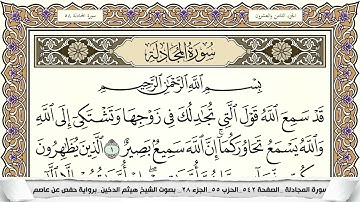 الجزء الثامن والعشرون
سورة المجادلة ٥٨
سُورَةُ المُجَادلَةِ
بِسْمِ ٱللَّهِ ٱلرَّحْمَٰنِ ٱلرَّحِيمِ
قَدْ سَمِعَ ٱللَّهُ قَوْلَ ٱلَّتِي تُجَٰدِلُكَ فِي زَوْجِهَا وَتَشْتَكِىٓ إِلَى ٱللَّهِ
وَٱللَّهُ يَسْمَعُ تَحَاوُرَكُمَآ إِنَّ ٱللَّهَ سَمِيعٌۢ بَصِيرٌ ١ ٱلَّذِينَ يُظَٰهِرُونَ
سورة المجادلة _الصفحة ٥٤٢_ الحزب ٥٥_ الجزء ٢٨_ بصوت الشيخ هيثم الدخين_ برواية حفص عن عاصم